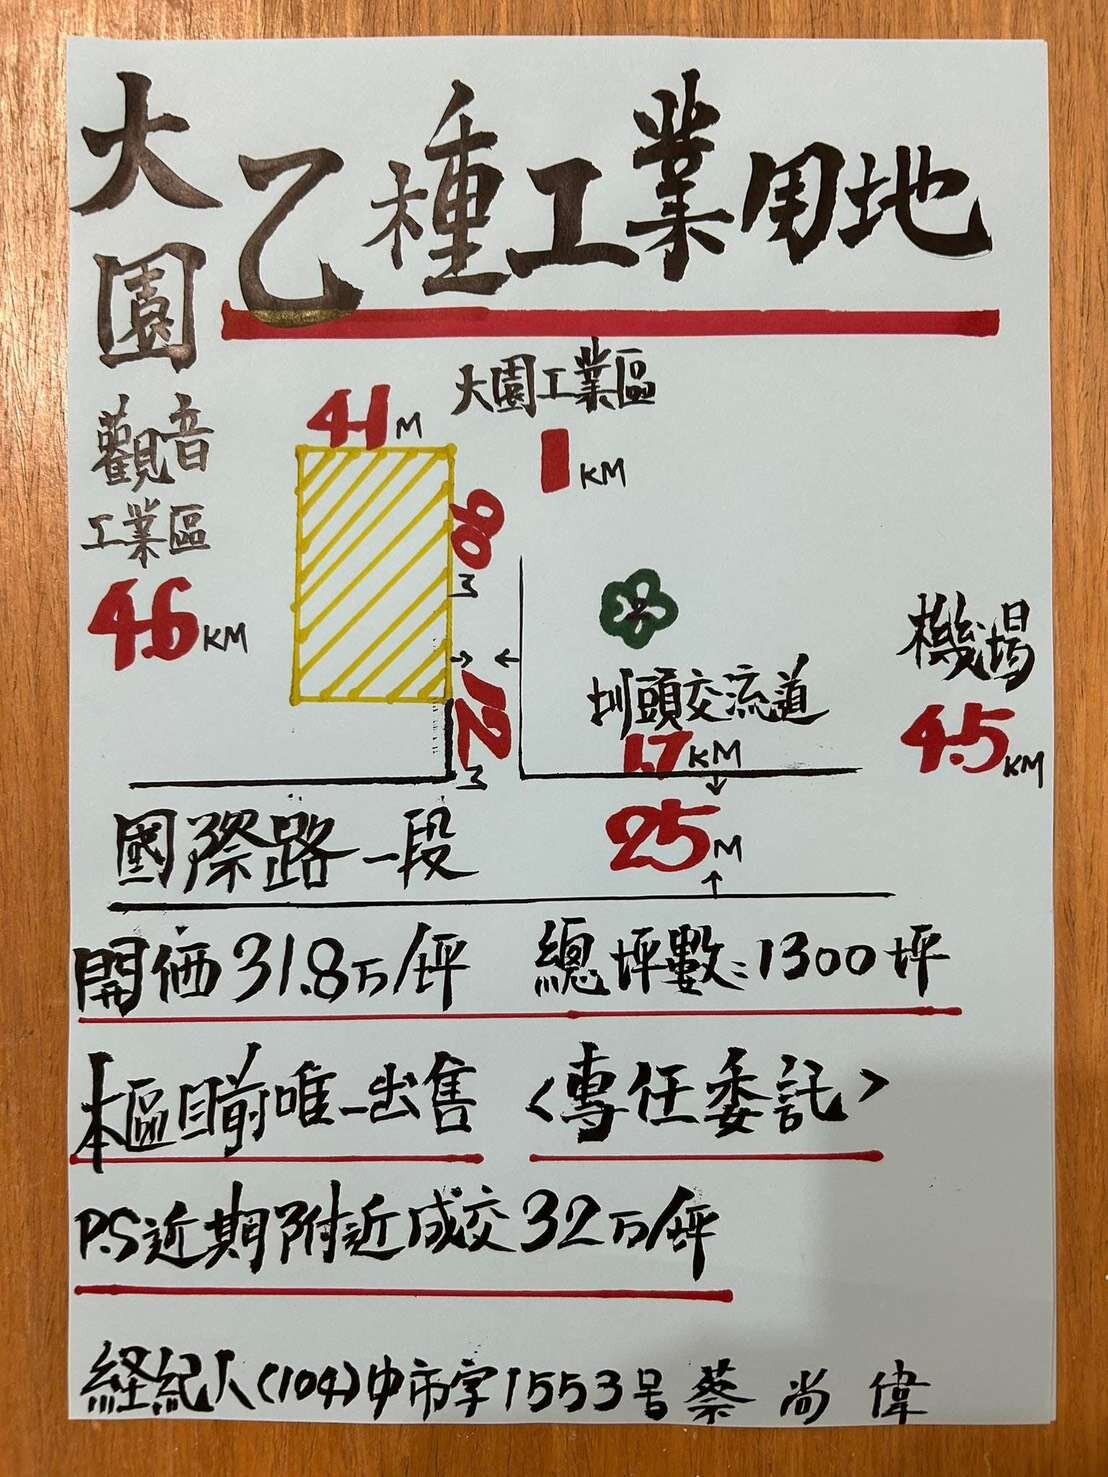 大園
乙種工業用地
觀音
工業區
4.6KM
41M
大園工業區
1KM
90M
12M
圳頭交流道
1.7KM
機場
4.5KM
國際路一段
25M
開価31.8万/坪 總坪數:1300坪
本區目前唯一出售 <專任委託>
P.S近期附近成交32万/坪
経紀人(104)中市字1553号蔡尚偉